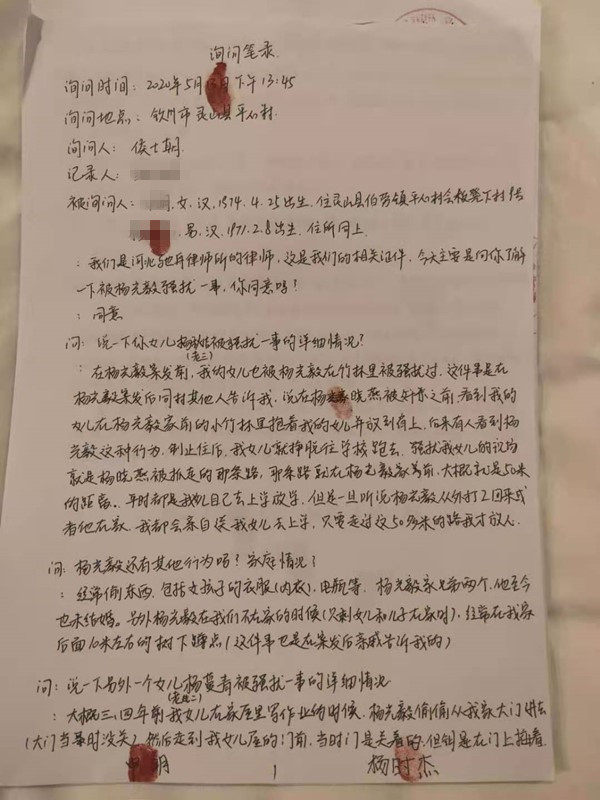 询问笔录
询问时间：2020年5月 日下午13:45
询问地点：钦州市灵山县平心村
询问人：侯士朝
记录人：
被询问人： 女，汉，1974.4.25出生，住灵山县伯劳镇平心村会板麓下村 号
男，汉，1971.2.8出生，住所同上
：我们是河北 律师所的律师，这是我们的相关证件，今天主要是向你了解
一下被杨光毅骚扰一事，你同意吗？
：同意
问：说一下你女儿 被骚扰一事的详细情况？
（老三）
：在杨光毅案发前，我的女儿也被杨光毅在竹林里被骚扰过，这件事是在
杨光毅案发后同村其他人告诉我，说在杨晓燕被奸杀之前，看到我的
女儿在杨光毅家前的小竹林里抱着我的女儿并放到肩上，后来有人看到杨
光毅这种行为，制止住后，我女儿就挣脱往学校跑去，骚扰我女儿的议场
就是杨晓燕被抓走的那条路，那条路就在杨光毅家前，大概就是50米
的距离。平时都是我女儿自己去上学放学，但是一旦听说杨光毅从外打工回来或
者他在家，我都会亲自送我女儿去上学，只要走过这50多米的路我才放心。
问：杨光毅还有其他行为吗？家庭情况？
：经常偷东西，包括女孩子的衣服（内衣），电瓶等，杨光毅家兄弟两个，他至今
也未结婚。另外杨光毅在我们不在家的时候（只剩女儿和儿子在家时），经常在我家
后面10米左右的树下蹲点（这件事也是在案发后亲戚告诉我的）
问：说一下另外一个女儿杨蔓青被骚扰一事的详细情况
（老二）
：大概三、四年前我女儿在家屋里写作业的时候，杨光毅偷偷从我家大门进去
（大门当时没关），然后走到我女儿屋的门前，当时门是关着的，但钥是在门上插着
明
1
杨时杰